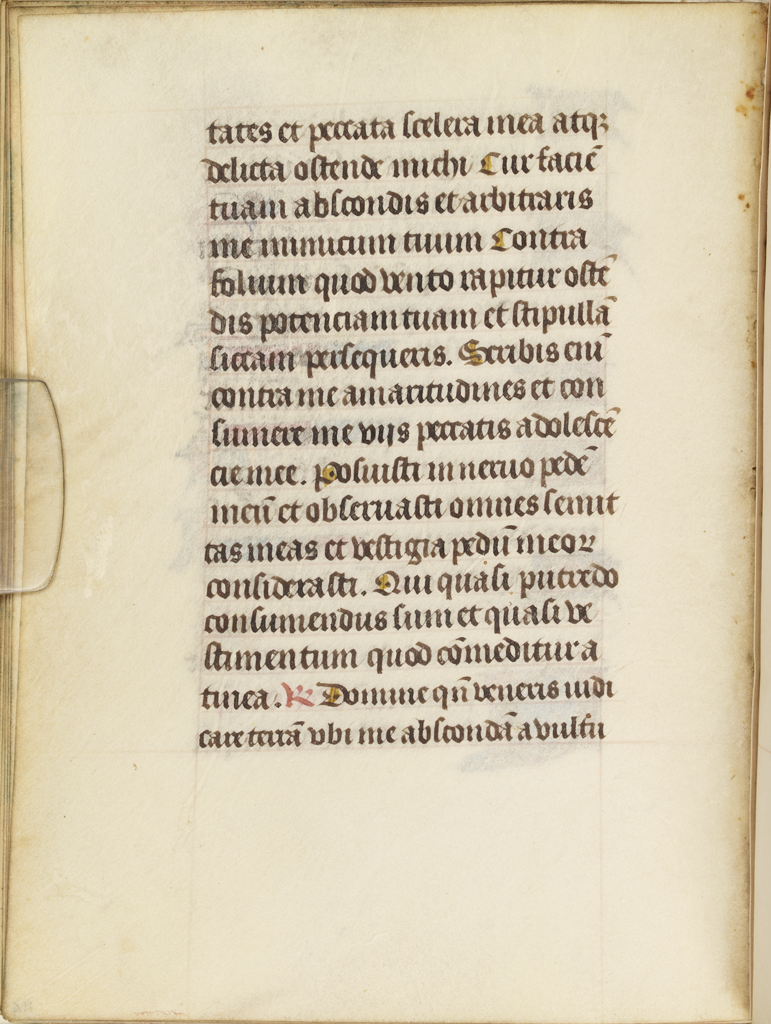 tates et peccata scelera mea atqꝫ
delicta ostende michi Cur faciē
tuam abscondis et arbitraris
me inimicum tuum Contra
folium quod vento rapitur ostē
dis potenciam tuam et stipullā
siccam persequeris. Scribis eniī
contra me amaritudines et con
sumere me viis peccatis adolescē
cie mee. Posuisti in neruo pedē
meū et obseruasti omnes semit
tas meas et vestigia pedū meoꝝ
considerasti. Qui quasi putredo
consumendus sum et quasi ve
stimentum quod cōmeditur a
tinea. ℟ Domine qn̄ veneris iudi
care terrā vbi me abscondā a vultu